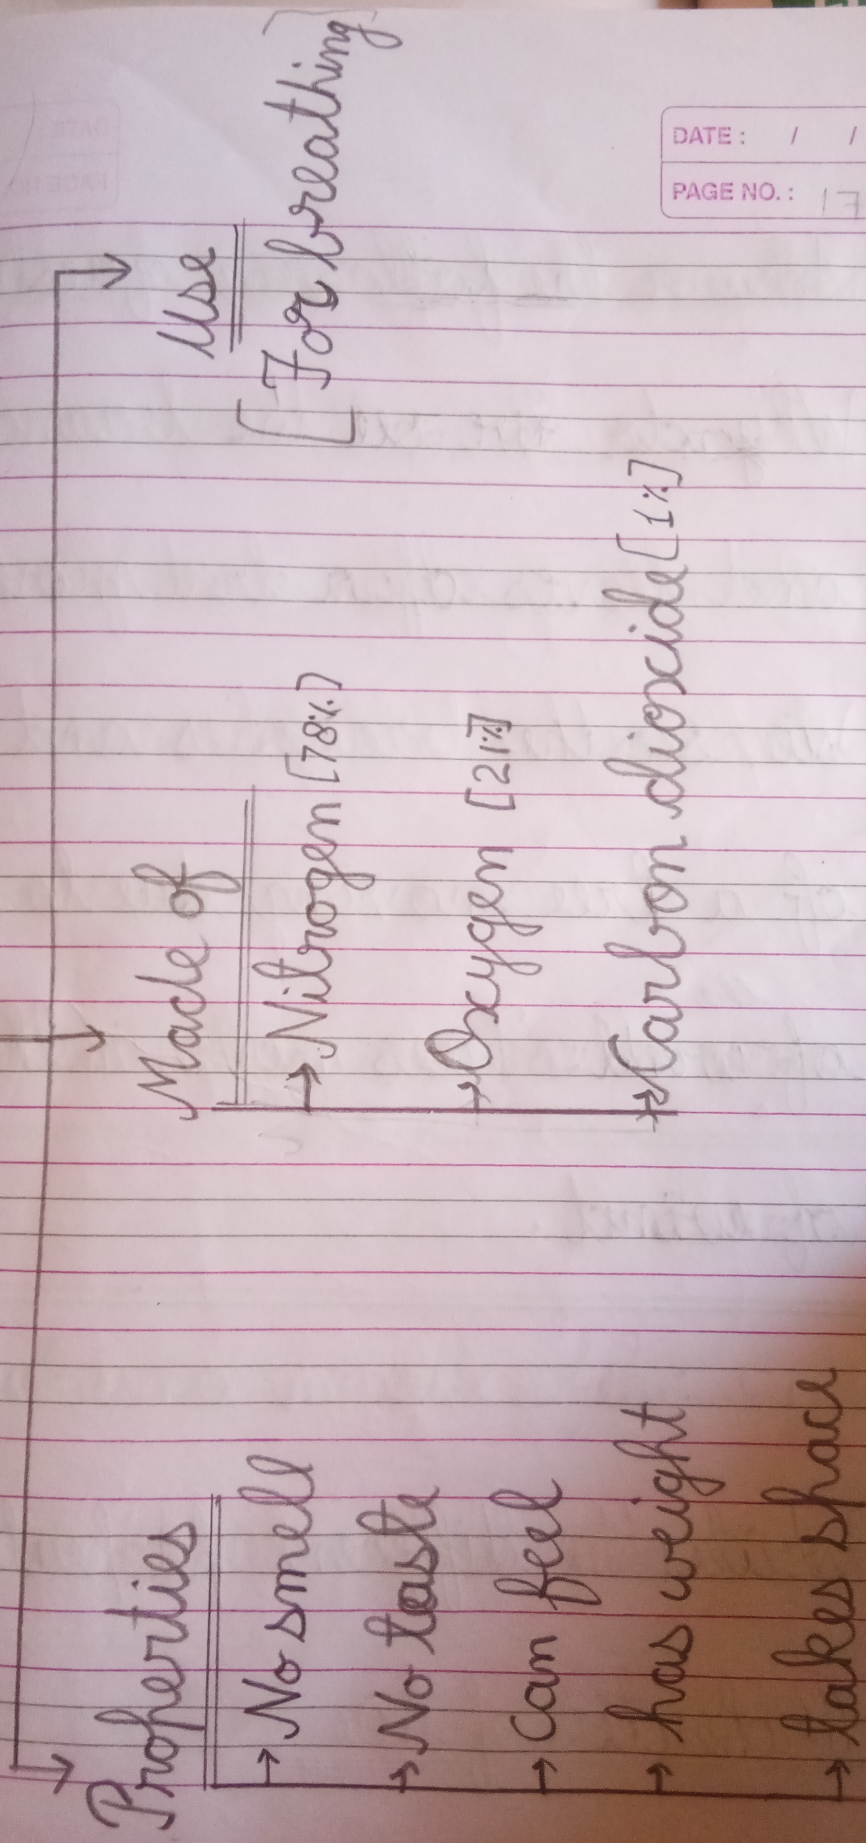 Properties
No smell
No taste
can feel
has weight
takes space
Made of
Nitrogen [78%]
Oxygen [21%]
Carbon dioxide [1%]
Use
[For breathing]
DATE: / /
PAGE NO.: